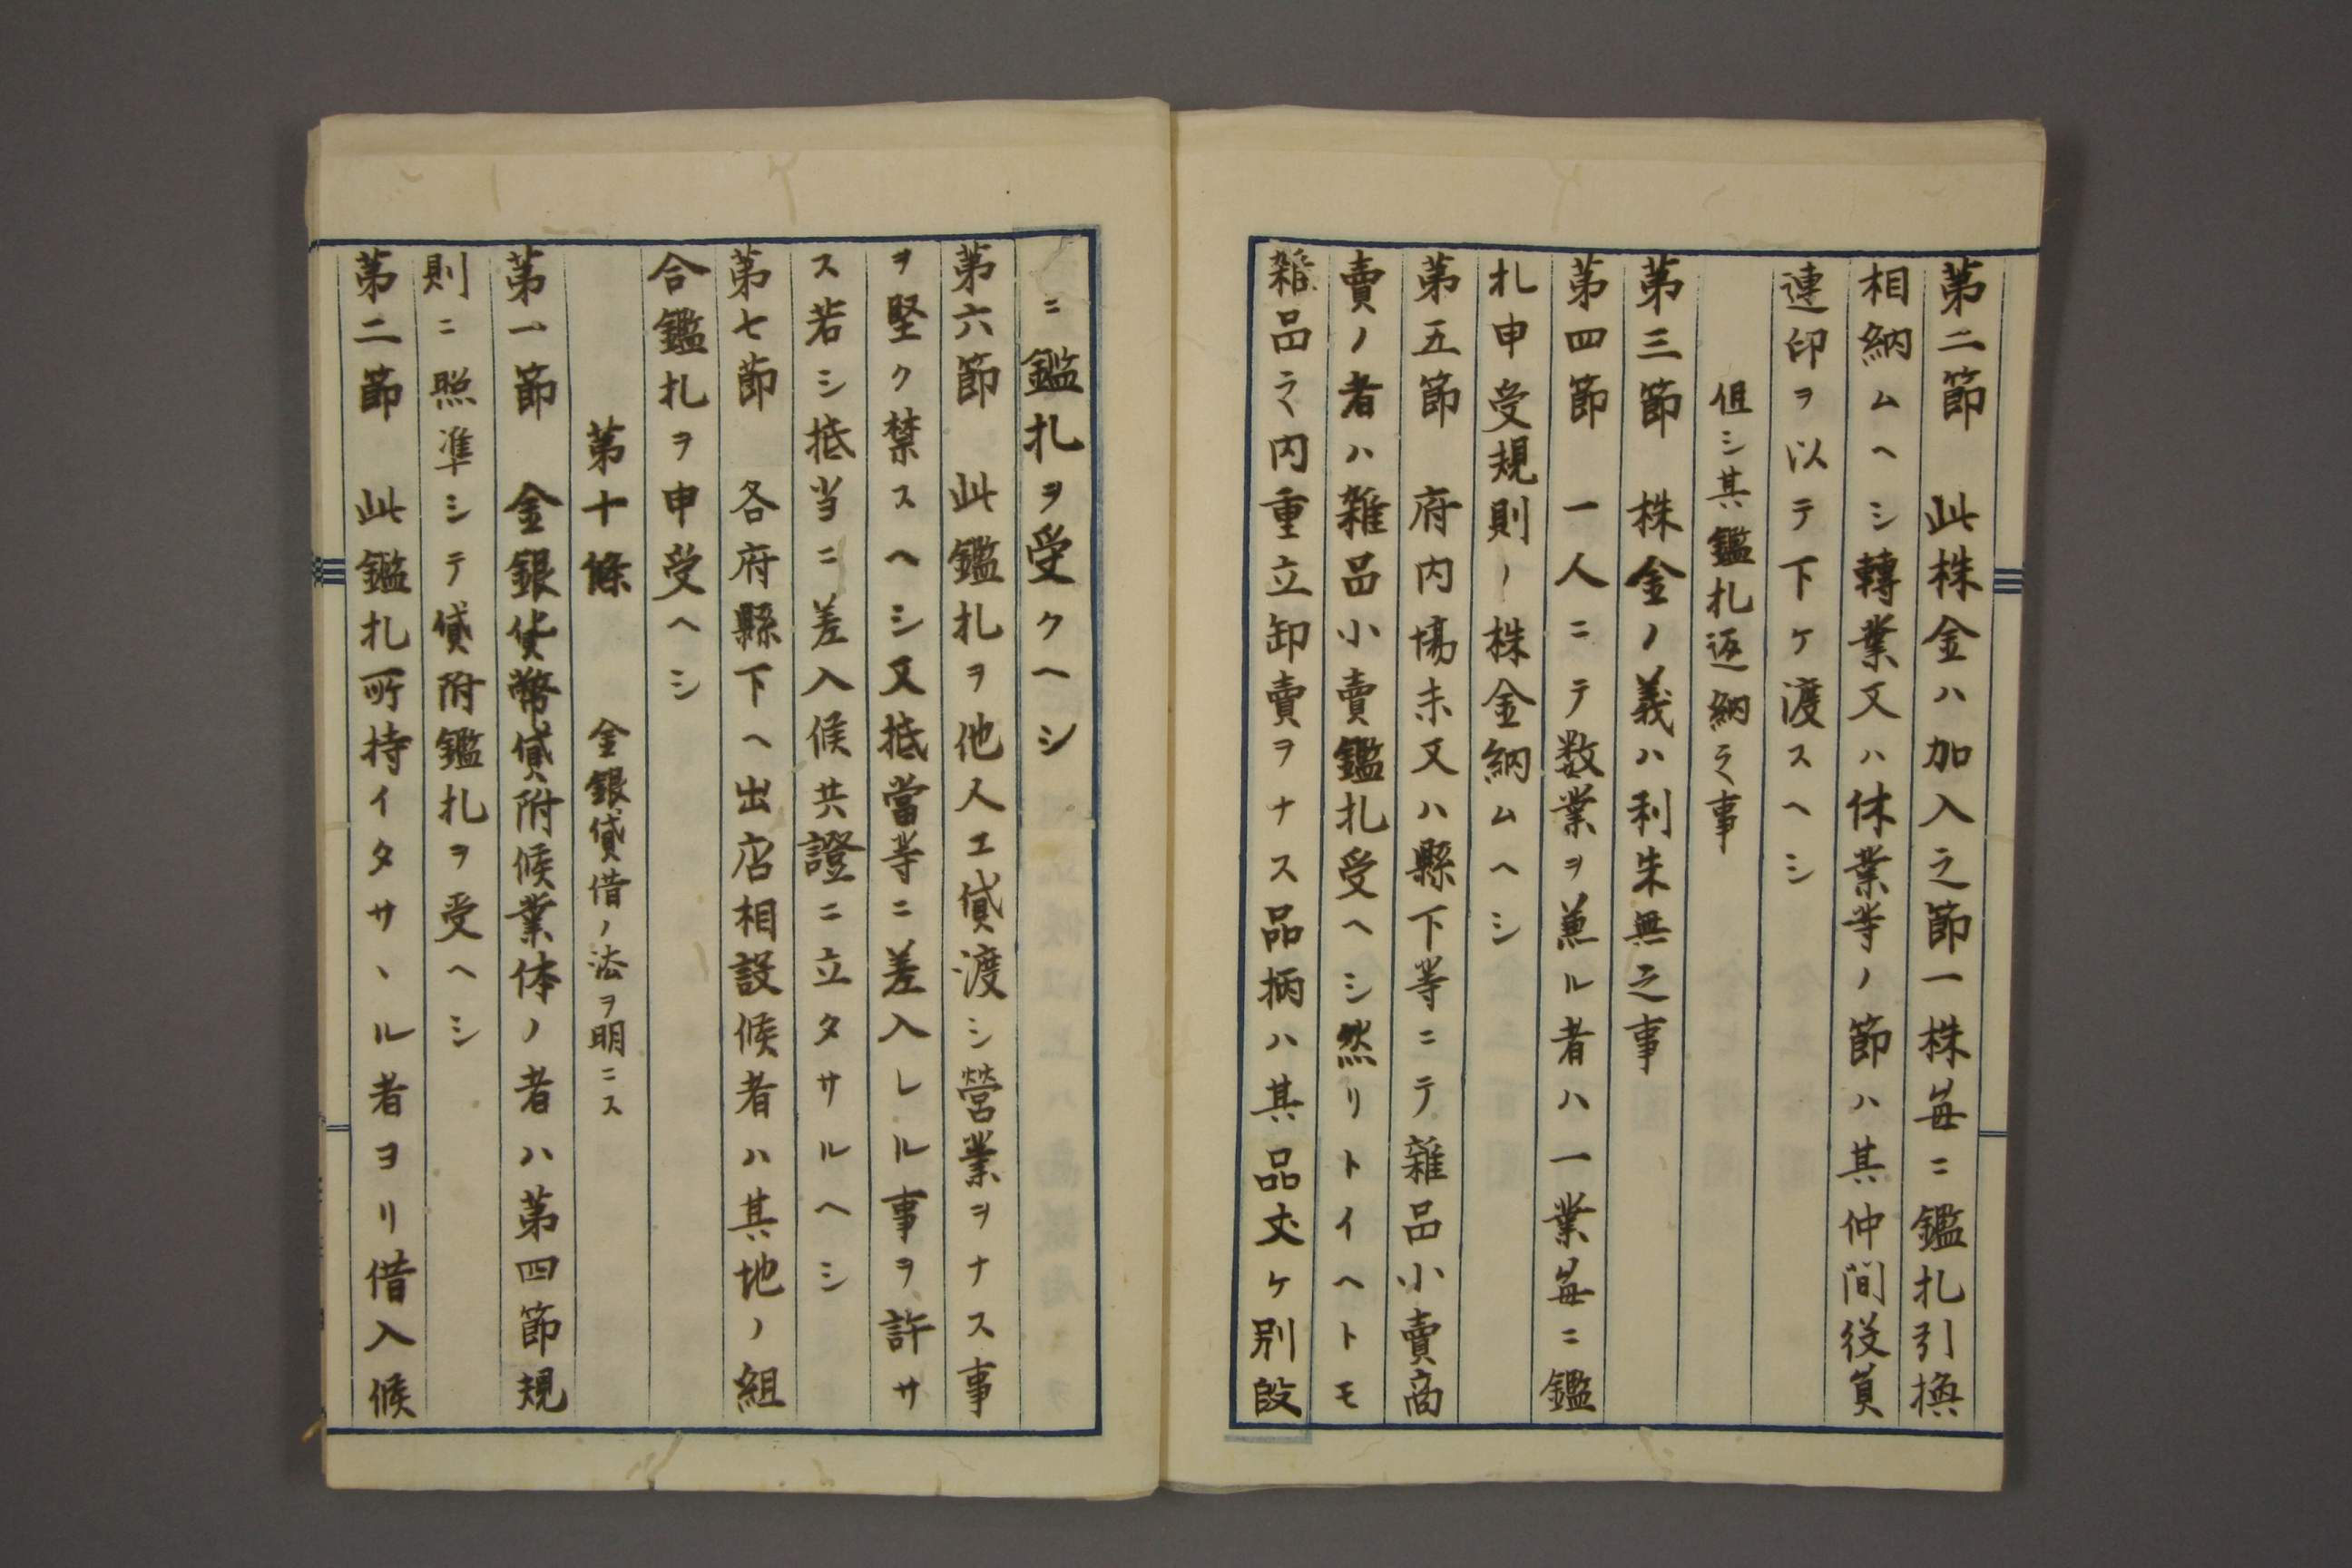 第二節　此株金ハ加入之節一株毎ニ鑑札引換
相納ムヘシ轉業又ハ休業等ノ節ハ其仲間役員
連印ヲ以テ下ケ渡スヘシ
但シ其鑑札返納之事
第三節　株金ノ義ハ利朱無之事
第四節　一人ニテ数業ヲ兼ル者ハ一業毎ニ鑑
札申受規則ノ株金納ムヘシ
第五節　府内場末又ハ縣下等ニテ雑品小賣商
賣ノ者ハ雑品小賣鑑札受ヘシ然リトイヘトモ
雑品之内重立卸賣ヲナス品柄ハ其品丈ケ別段
ニ鑑札ヲ受クヘシ
第六節　此鑑札ヲ他人エ貸渡シ営業ヲナス事
ヲ堅ク禁スヘシ又抵當等ニ差入レル事ヲ許サ
ス若シ抵当ニ差入候共證ニ立タサルヘシ
第七節　各府縣下ヘ出店相設候者ハ其地ノ組
合鑑札ヲ申受ヘシ
第十條　金銀貸借ノ法ヲ明ニス
第一節　金銀貨幣貸附候業体ノ者ハ第四節規
則ニ照準シテ貸附鑑札ヲ受ヘシ
第二節　此鑑札所持イタサヽル者ヨリ借入候